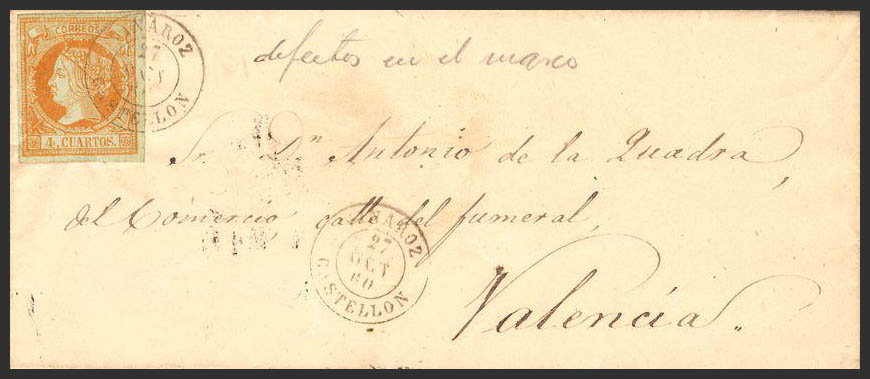 CORREOS
4. CUARTOS.
NAROZ
27
OCT
STELLON
defectos en el marco
Sr. Dn Antonio de la Quadra,
del Comercio calle del fumeral,
NAROZ
27
OCT
60
STELLON
Valencia..